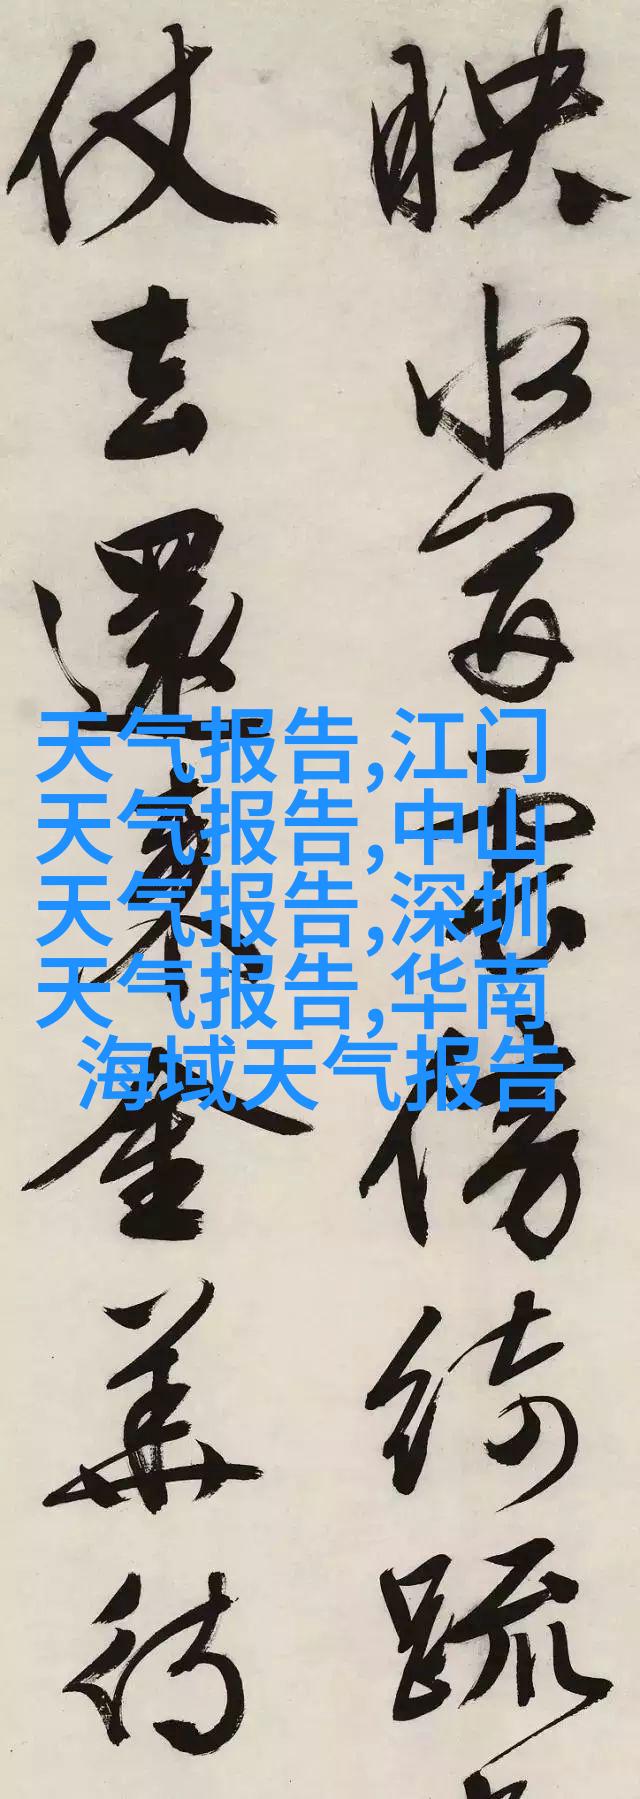 映水雲傍綺疏
仗去還金華
天气报告,江门
天气报告,中山
天气报告,深圳
天气报告,华南
海域天气报告